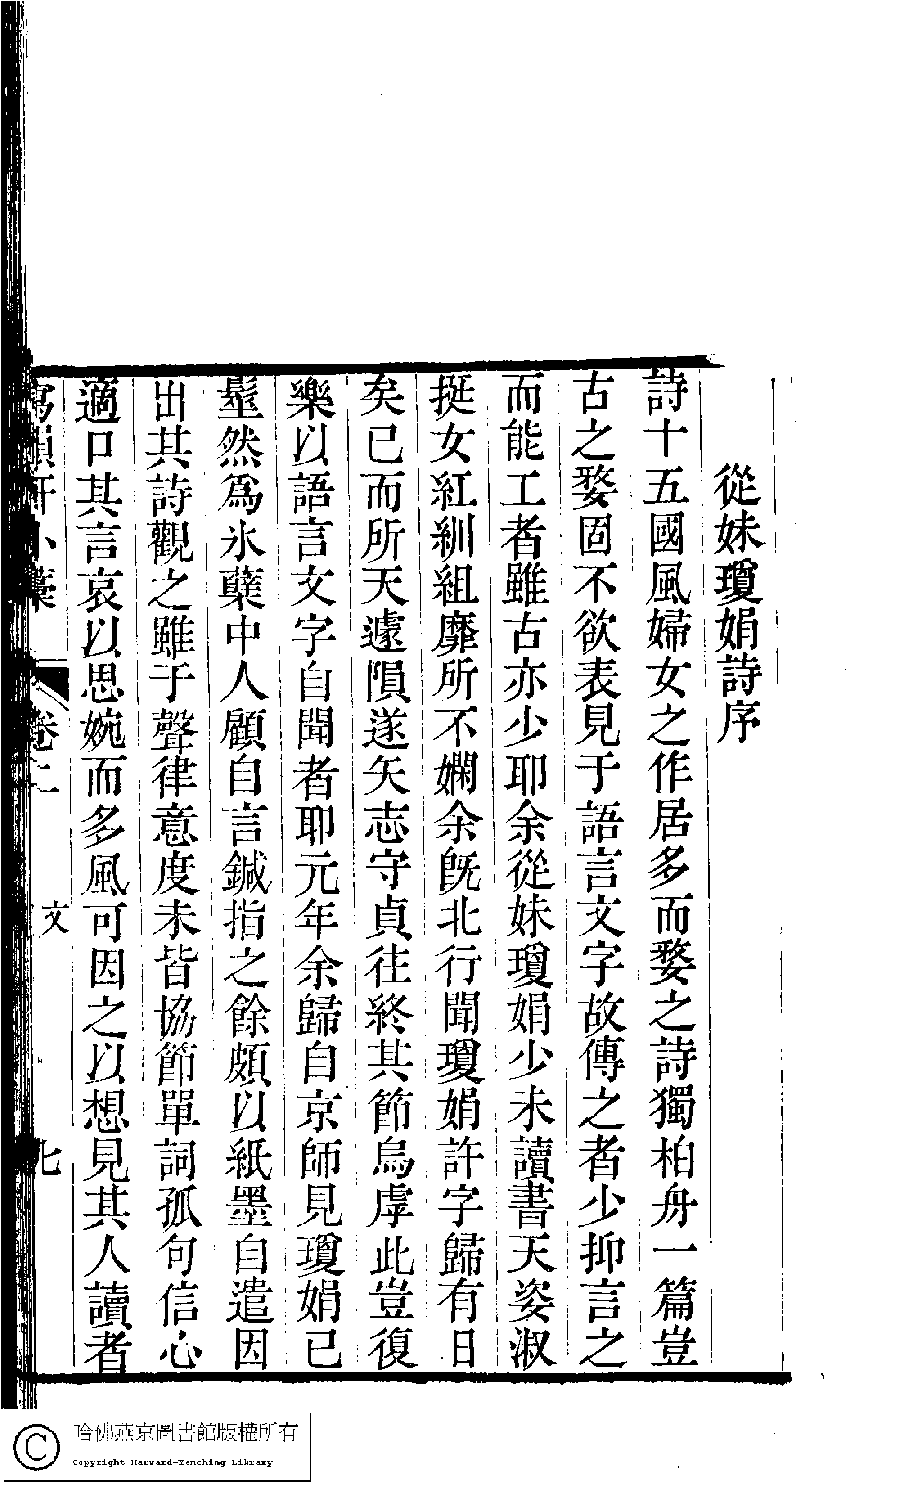 從妹瓊娟詩序
詩十五國風婦女之作居多而婺之詩獨柏舟一篇豈
古之婺固不欲表見于語言文字故傳之者少抑言之
而能工者雖古亦少耶余從妹瓊娟少未讀書天姿淑
挺女紅紃組靡所不嫻余旣北行聞瓊娟許字歸有日
矣已而所天遽隕遂矢志守貞往終其節烏虖此豈復
樂以語言文字自聞者耶元年余歸自京師見瓊娟已
髽然爲氷櫱中人顧自言鍼指之餘頗以紙墨自遣因
出其詩觀之雖于聲律意度未皆協節單詞孤句信心
適口其言哀以思婉而多風可因之以想見其人讀者
韻軒小藁 卷二 文 七
哈佛燕京圖書館版權所有
Copyright Harvard-Yenching Library